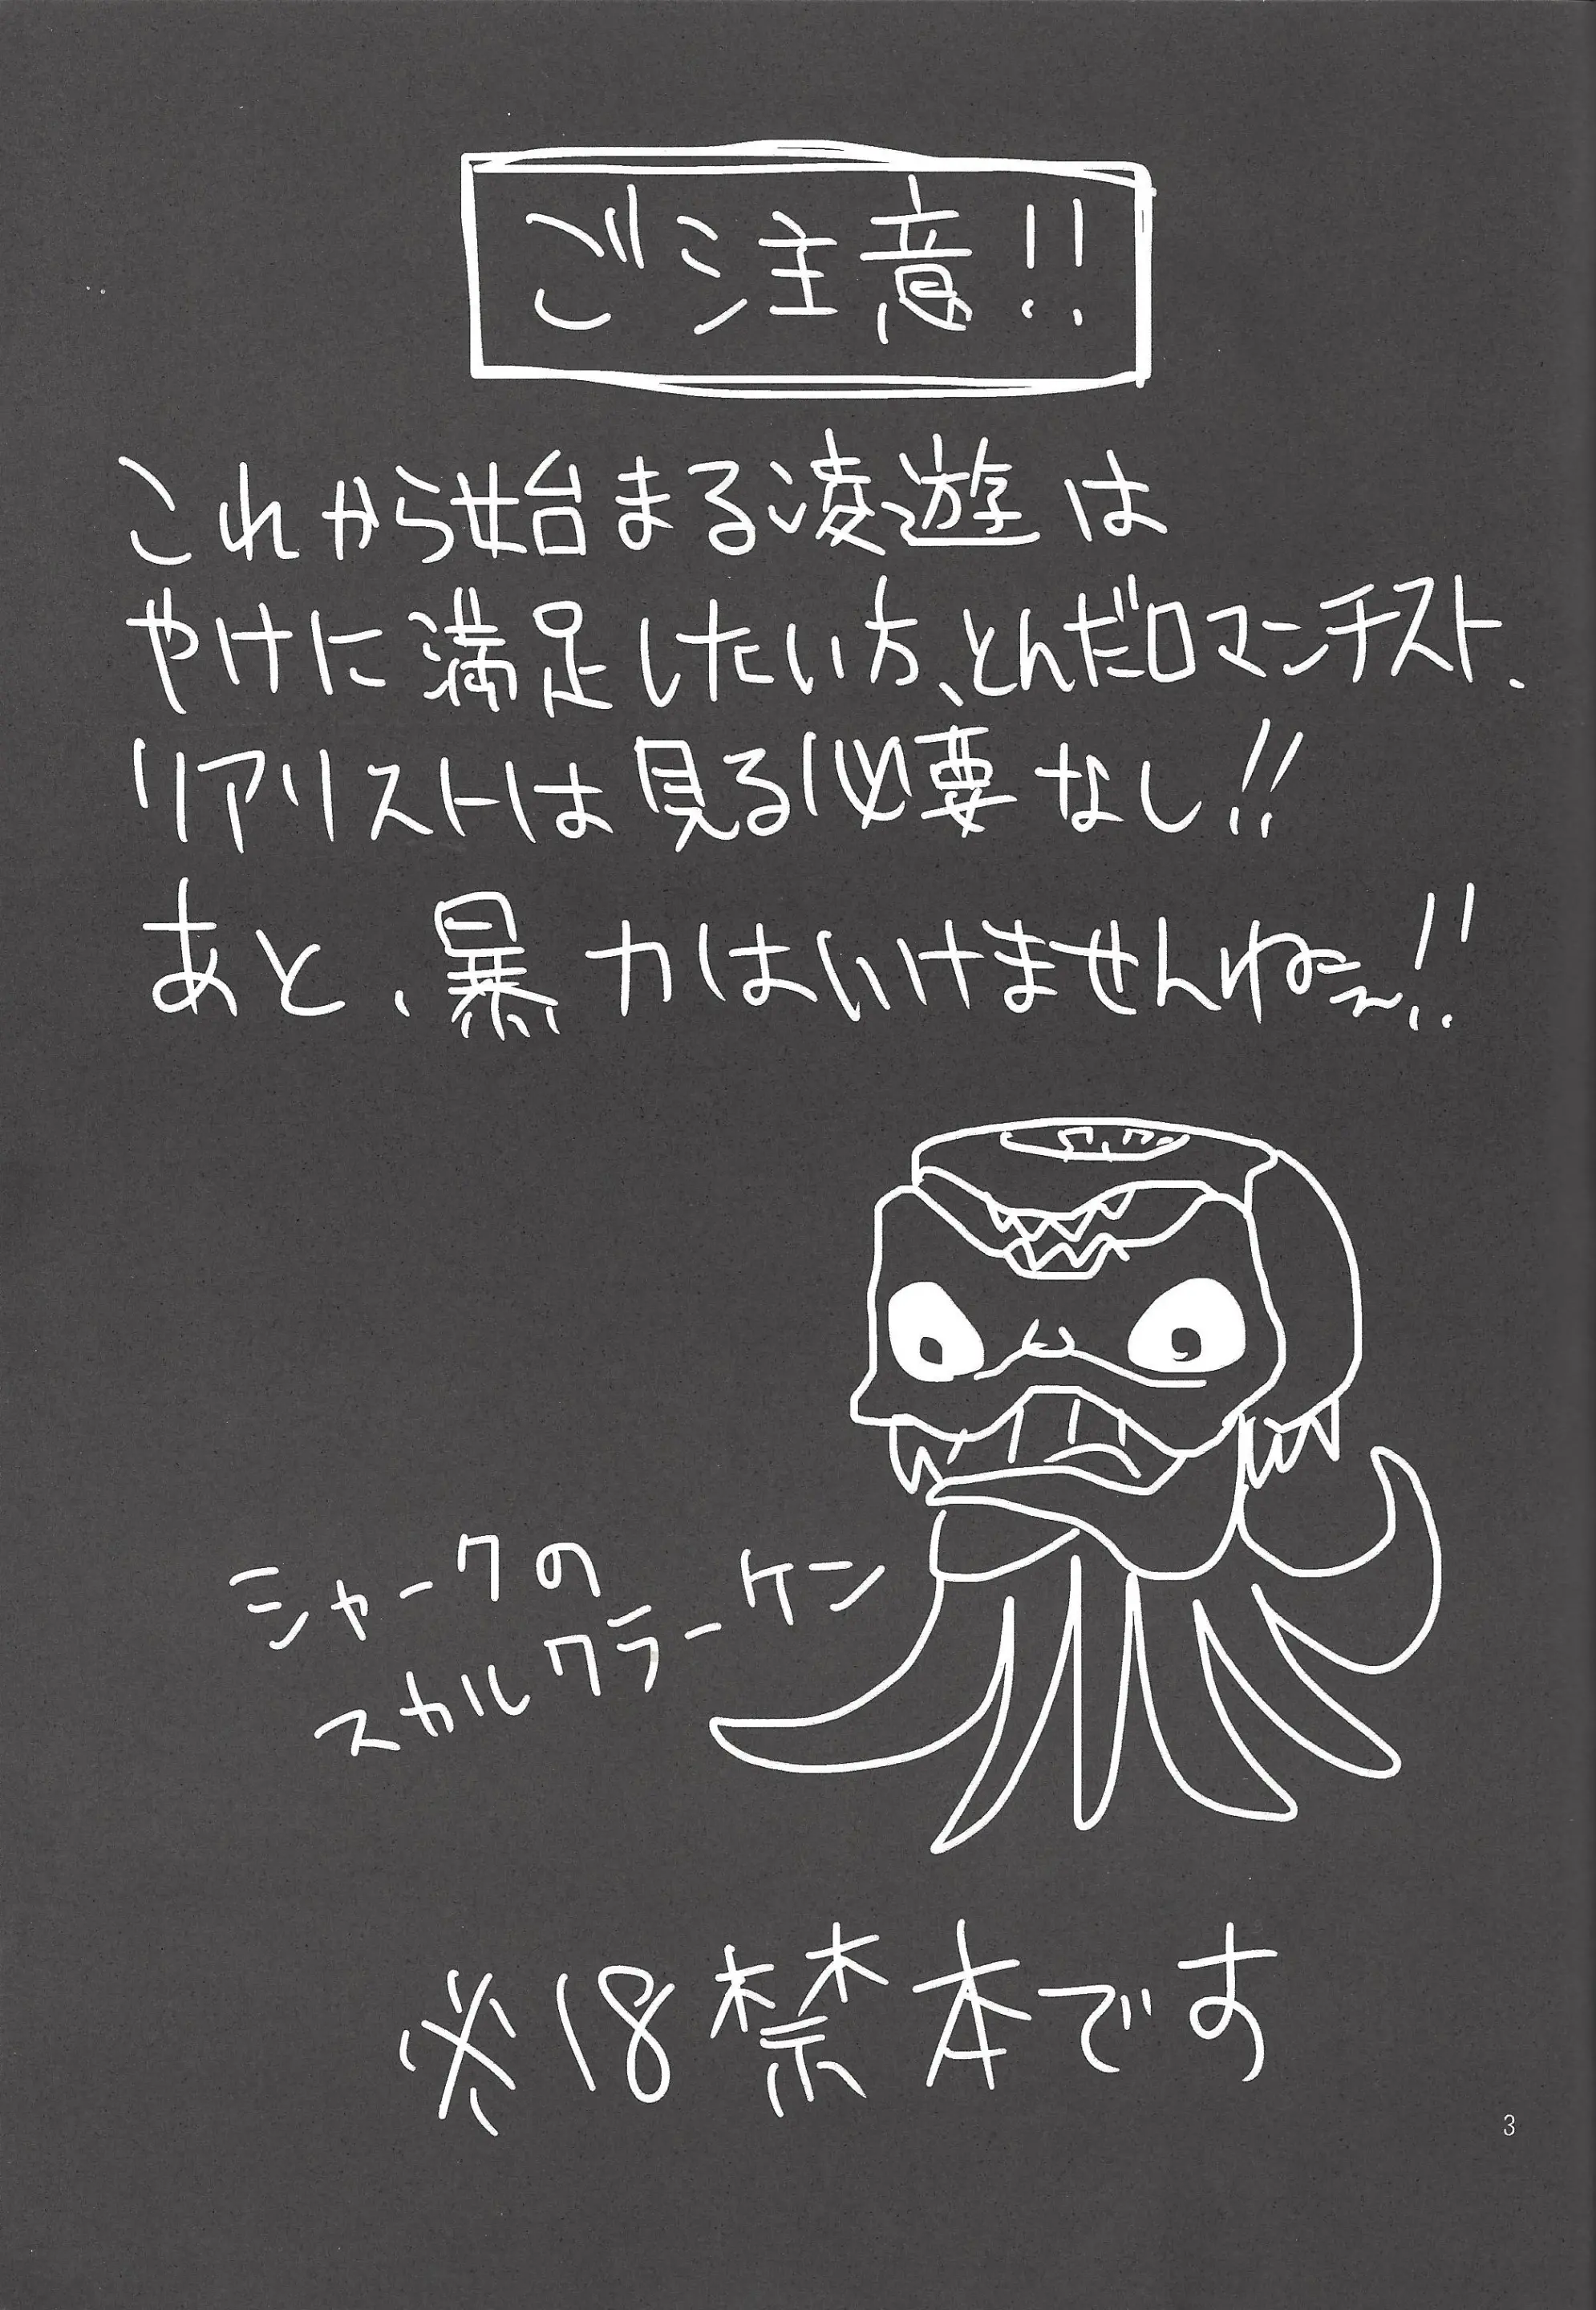 ご注意!!
これから始まる凌遊は
やけに満足したい方、とんだロマンチスト、
リアリストは見る必要なし!!
あと、暴力はいけませんねぇ〜!!
シャークの
スカルクラーケン
※18禁本です
3